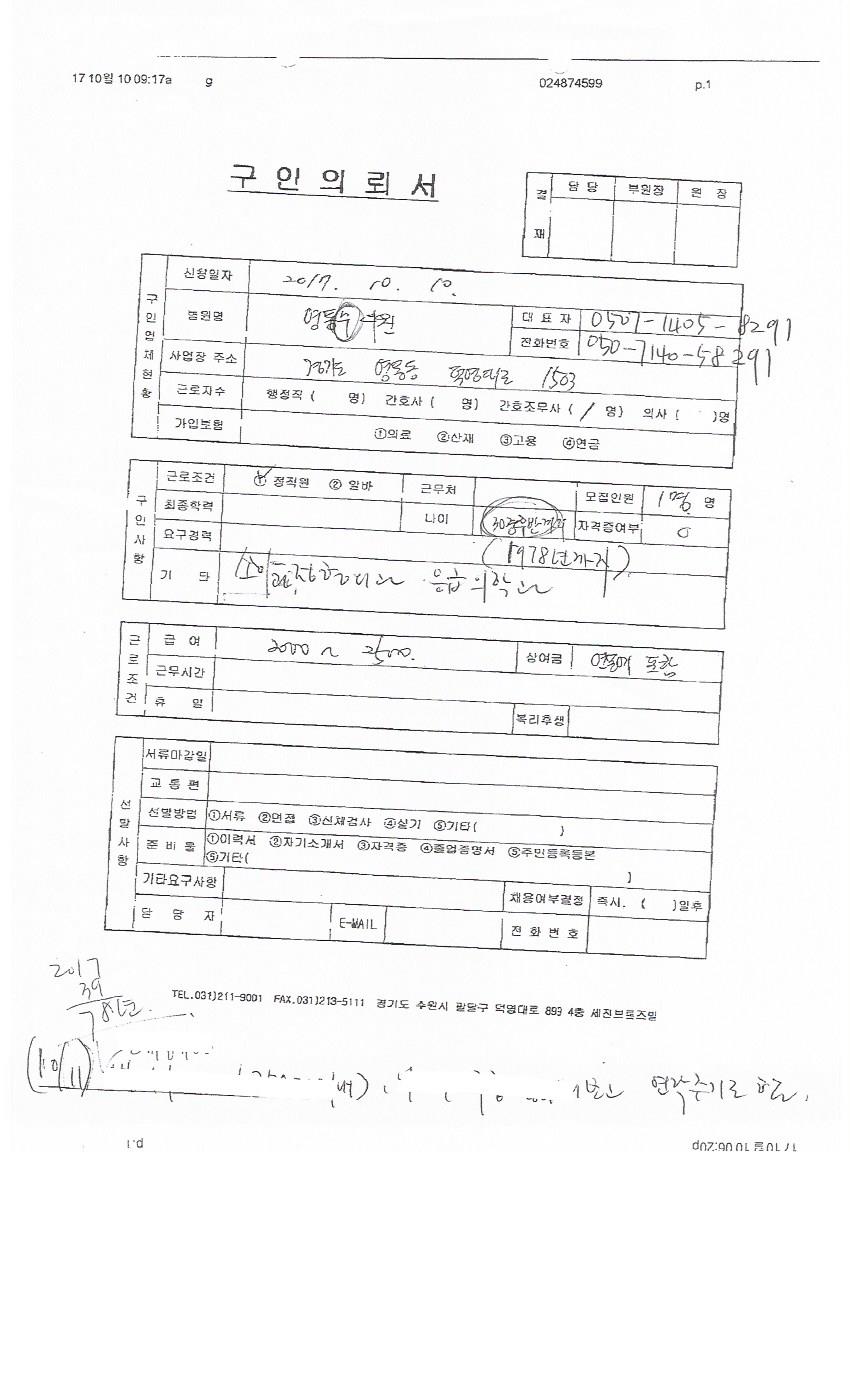 17 10월 10 09:17a g 024874599 p.1
구 인 의 뢰 서
결 재 담 당 부원장 원 장
구인업체현황
신청일자 2017. 10. 10.
병원명 대 표 자 0507-1405-8291
전화번호 050-7140-58291
사업장 주소 경기도 영통동 덕영대로 1503
근로자수 행정직 ( 명) 간호사 ( 명) 간호조무사 ( / 명) 의사 ( )명
가입보험 ①의료 ②산재 ③고용 ④연금
구인사항
근로조건 ① 정직원 ② 알바 근무처 모집인원 1명 명
최종학력 나이 30중후반까지 자격증여부 0
요구경력 (1978년까지)
기 타 응급의학과
근로조건
급 여 2000 ~ 2500. 상여금 포함
근무시간
휴 일 복리후생
선발사항
서류마감일
교 통 편
선발방법 ①서류 ②면접 ③신체검사 ④실기 ⑤기타( )
준 비 물 ①이력서 ②자기소개서 ③자격증 ④졸업증명서 ⑤주민등록등본
⑤기타( )
기타요구사항 채용여부결정 즉시. ( )일후
담 당 자 E-MAIL 전 화 번 호
2017
39
78년도.
TEL.031)211-9001 FAX.031)213-5111 경기도 수원시 팔달구 덕영대로 899 4층 세진브로즈빌
(10/11) 연락주기로 함.
p.1 17 10월 10 06:20p